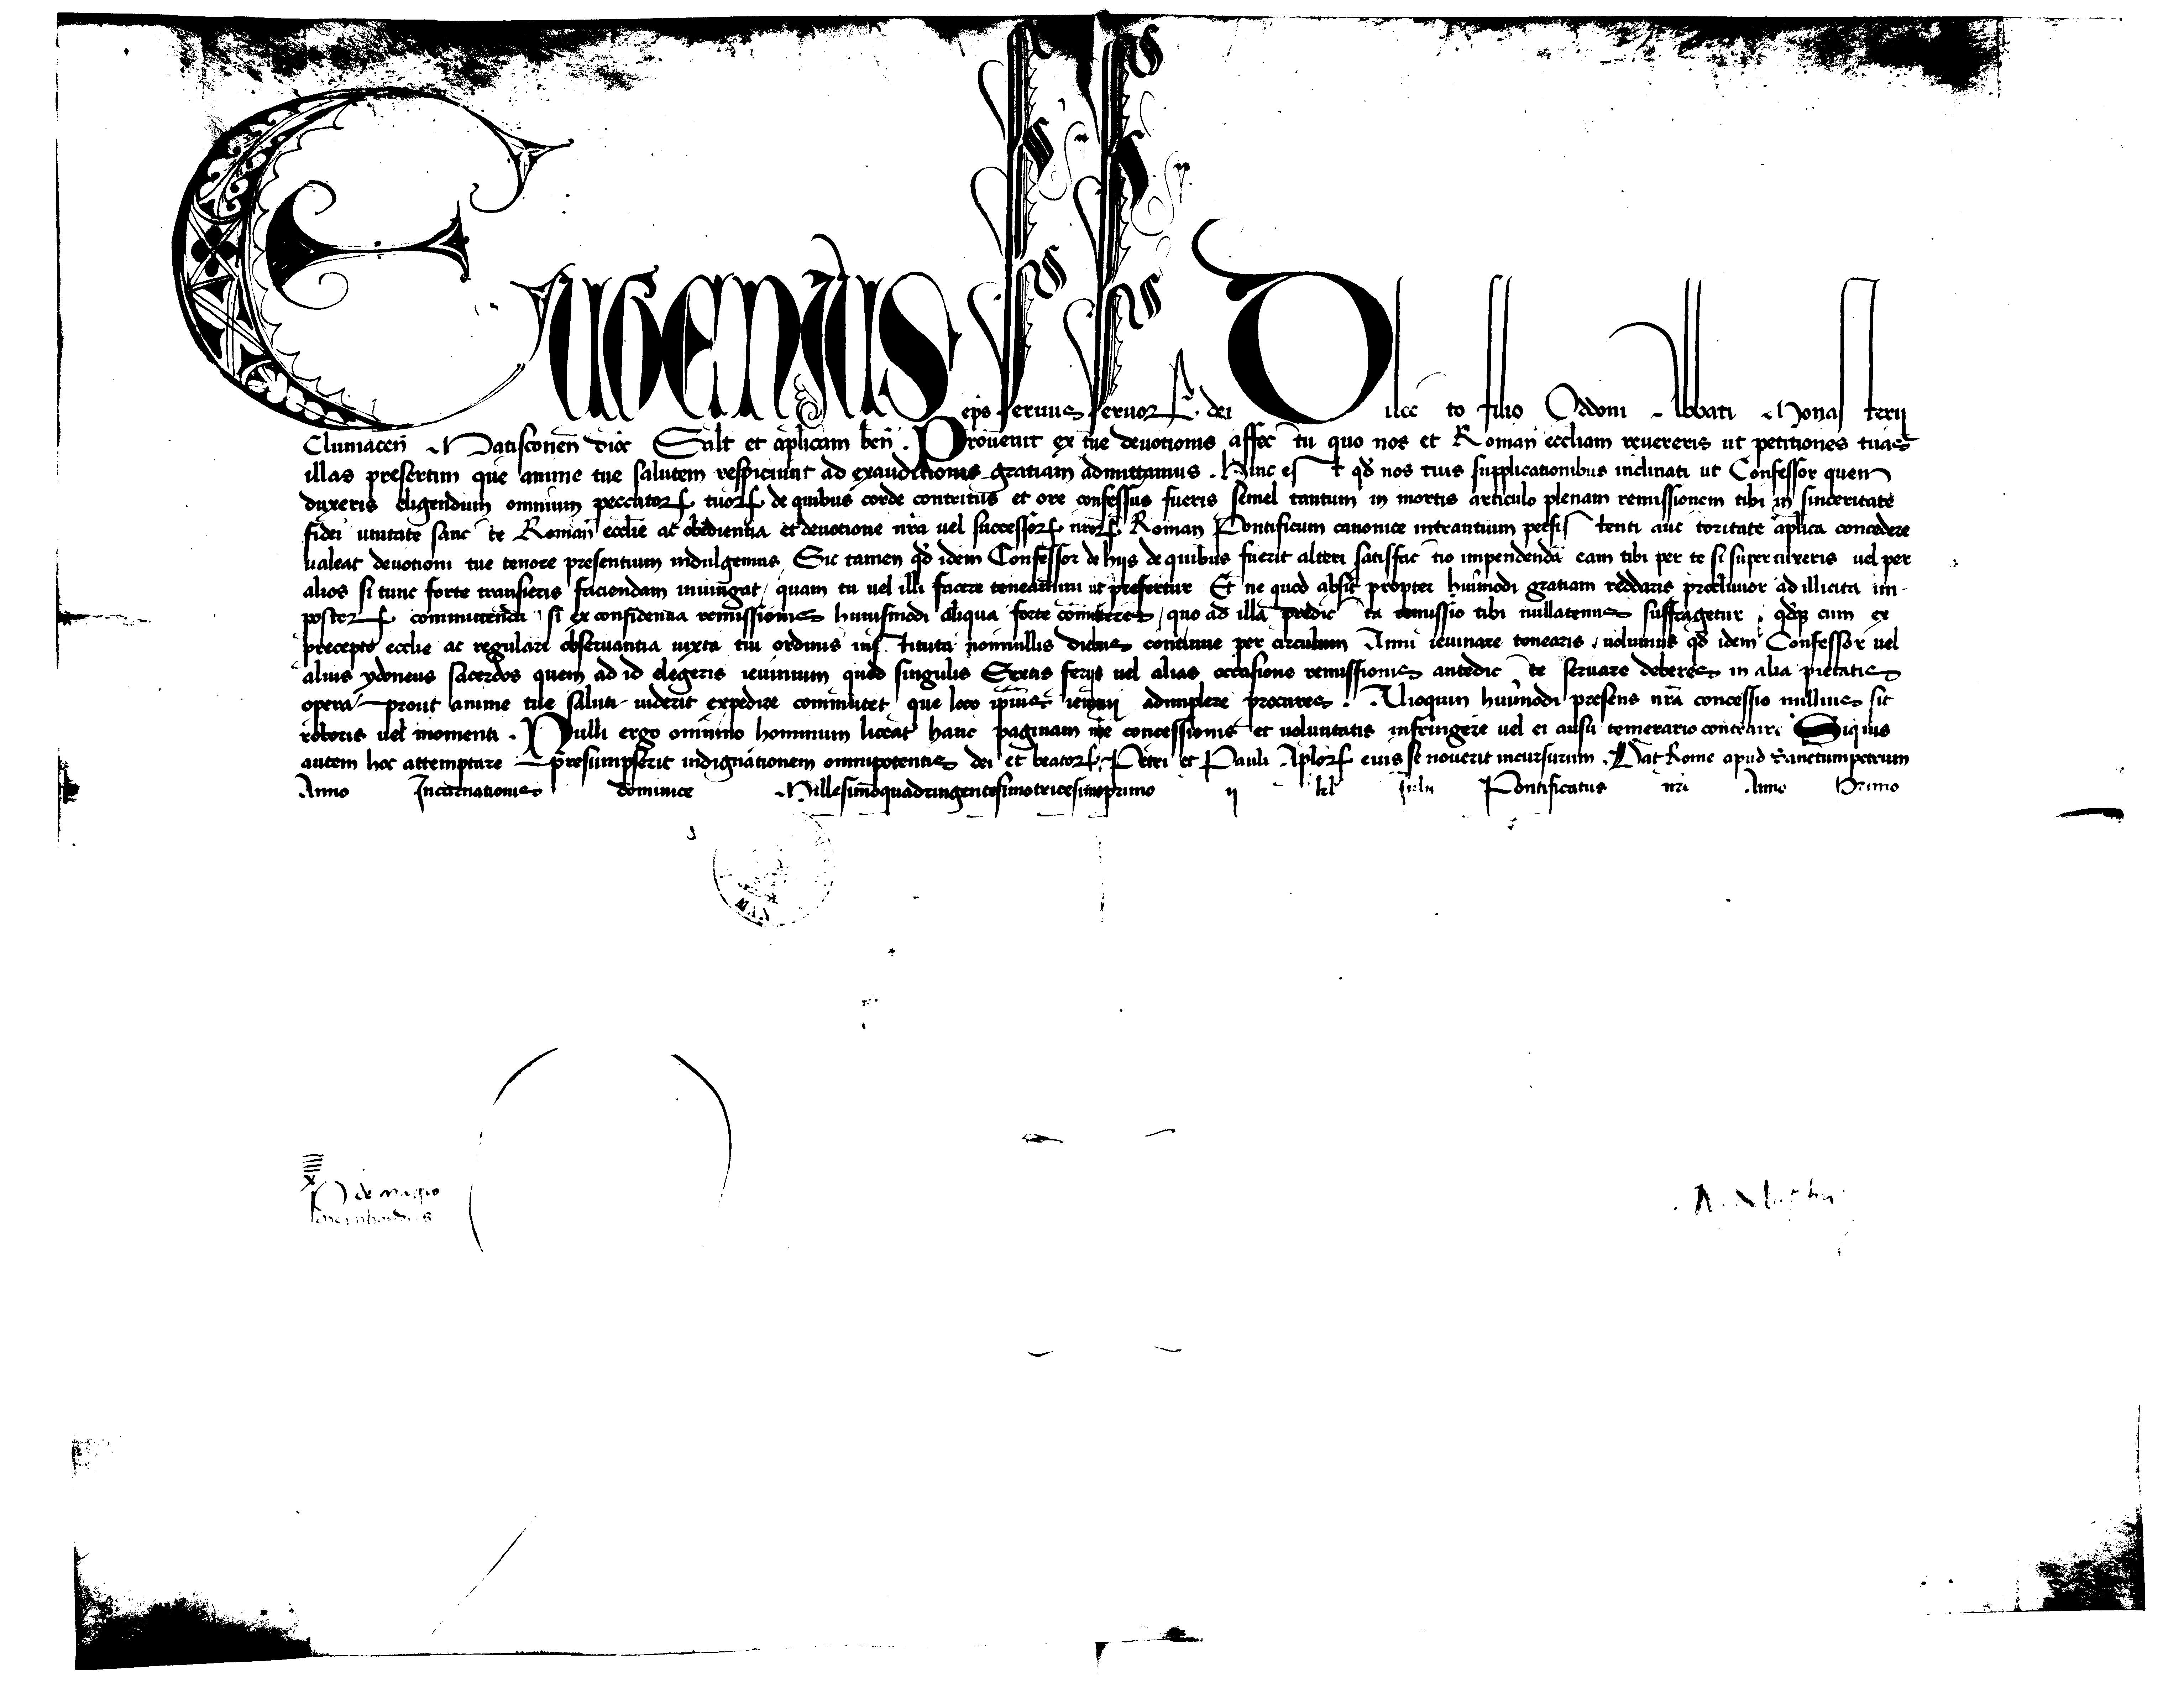 Eugenius eps seruus seruor dei Dilecto filio Odoni Abbati Monasterij
Cluniaceñ Matisconeñ dioc Salt et aplicam beñ. Prouenit ex tue deuotionis affectu quo nos et Romañ eccliam reuereris ut petitiones tuas
illas presertim que anime tue salutem respiciunt ad exauditionis gratiam admittamus. Hinc est qd nos tuis supplicationibus inclinati ut Confessor quem
duxeris eligendum omnium peccatorꝝ tuorꝝ de quibus corde contritus et ore confessus fueris semel tantum in mortis articulo plenam remissionem tibi in sinceritate
fidei unitate sancte Romañ ecclie ac obedientia et deuotione nrã uel successorꝝ nrorꝝ Roman Pontificum canonice intrantium persistenti auctoritate aplica concedere
ualeat deuotioni tue tenore presentium indulgemus. Sic tamen qd idem Confessor de hijs de quibus fuerit alteri satisfactio impendenda eam tibi per te si superuixeris uel per
alios si tunc forte transieris faciendam iniungat, quam tu uel illi facere teneamini ut prefertur Et ne quod absit propter huiꝰmodi gratiam reddaris procliuior ad illicita im-
posterꝝ committenda, si ex confidentia remissionis huiusmodi aliqua forte comitteres, quo ad illa predicta remissio tibi nullatenus suffragetur, qdqꝫ cum ex
precepto ecclie ac regulari obseruantia iuxta tui ordinis instituta nonnullis diebus continue per circulum Anni ieiunare tenearis, uolumus qd idem Confessor uel
alius ydoneus sacerdos quem ad id elegeris ieiunium quod singulis Sextis ferijs uel alias occasione remissionis antedicte seruare deberes in alia pietatis
opera prout anime tue saluti uiderit expedire commutet que loco ipius ieiunij adimplere procures. Alioquin huiꝰmodi presens nrã concessio nullius sit
roboris uel momenti. Nulli ergo omnino hominum liceat hanc paginam nre concessionis et uoluntatis infringere uel ei ausu temerario contraire Siquis
autem hoc attemptare presumpserit indignationem omnipotentis dei et beatorꝝ Petri et Pauli Aplorꝝ eius se nouerit incursurum. Dat Rome apud Sanctumpetrum
Anno Incarnationis dominice Millesimoquadringentesimotricesimoprimo ij kl Julij Pontificatus nri Anno Primo
x
de